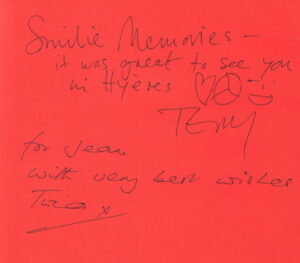 Smilie Memories -
it was great to see you
in Hyères
for Jean
with very best wishes
x